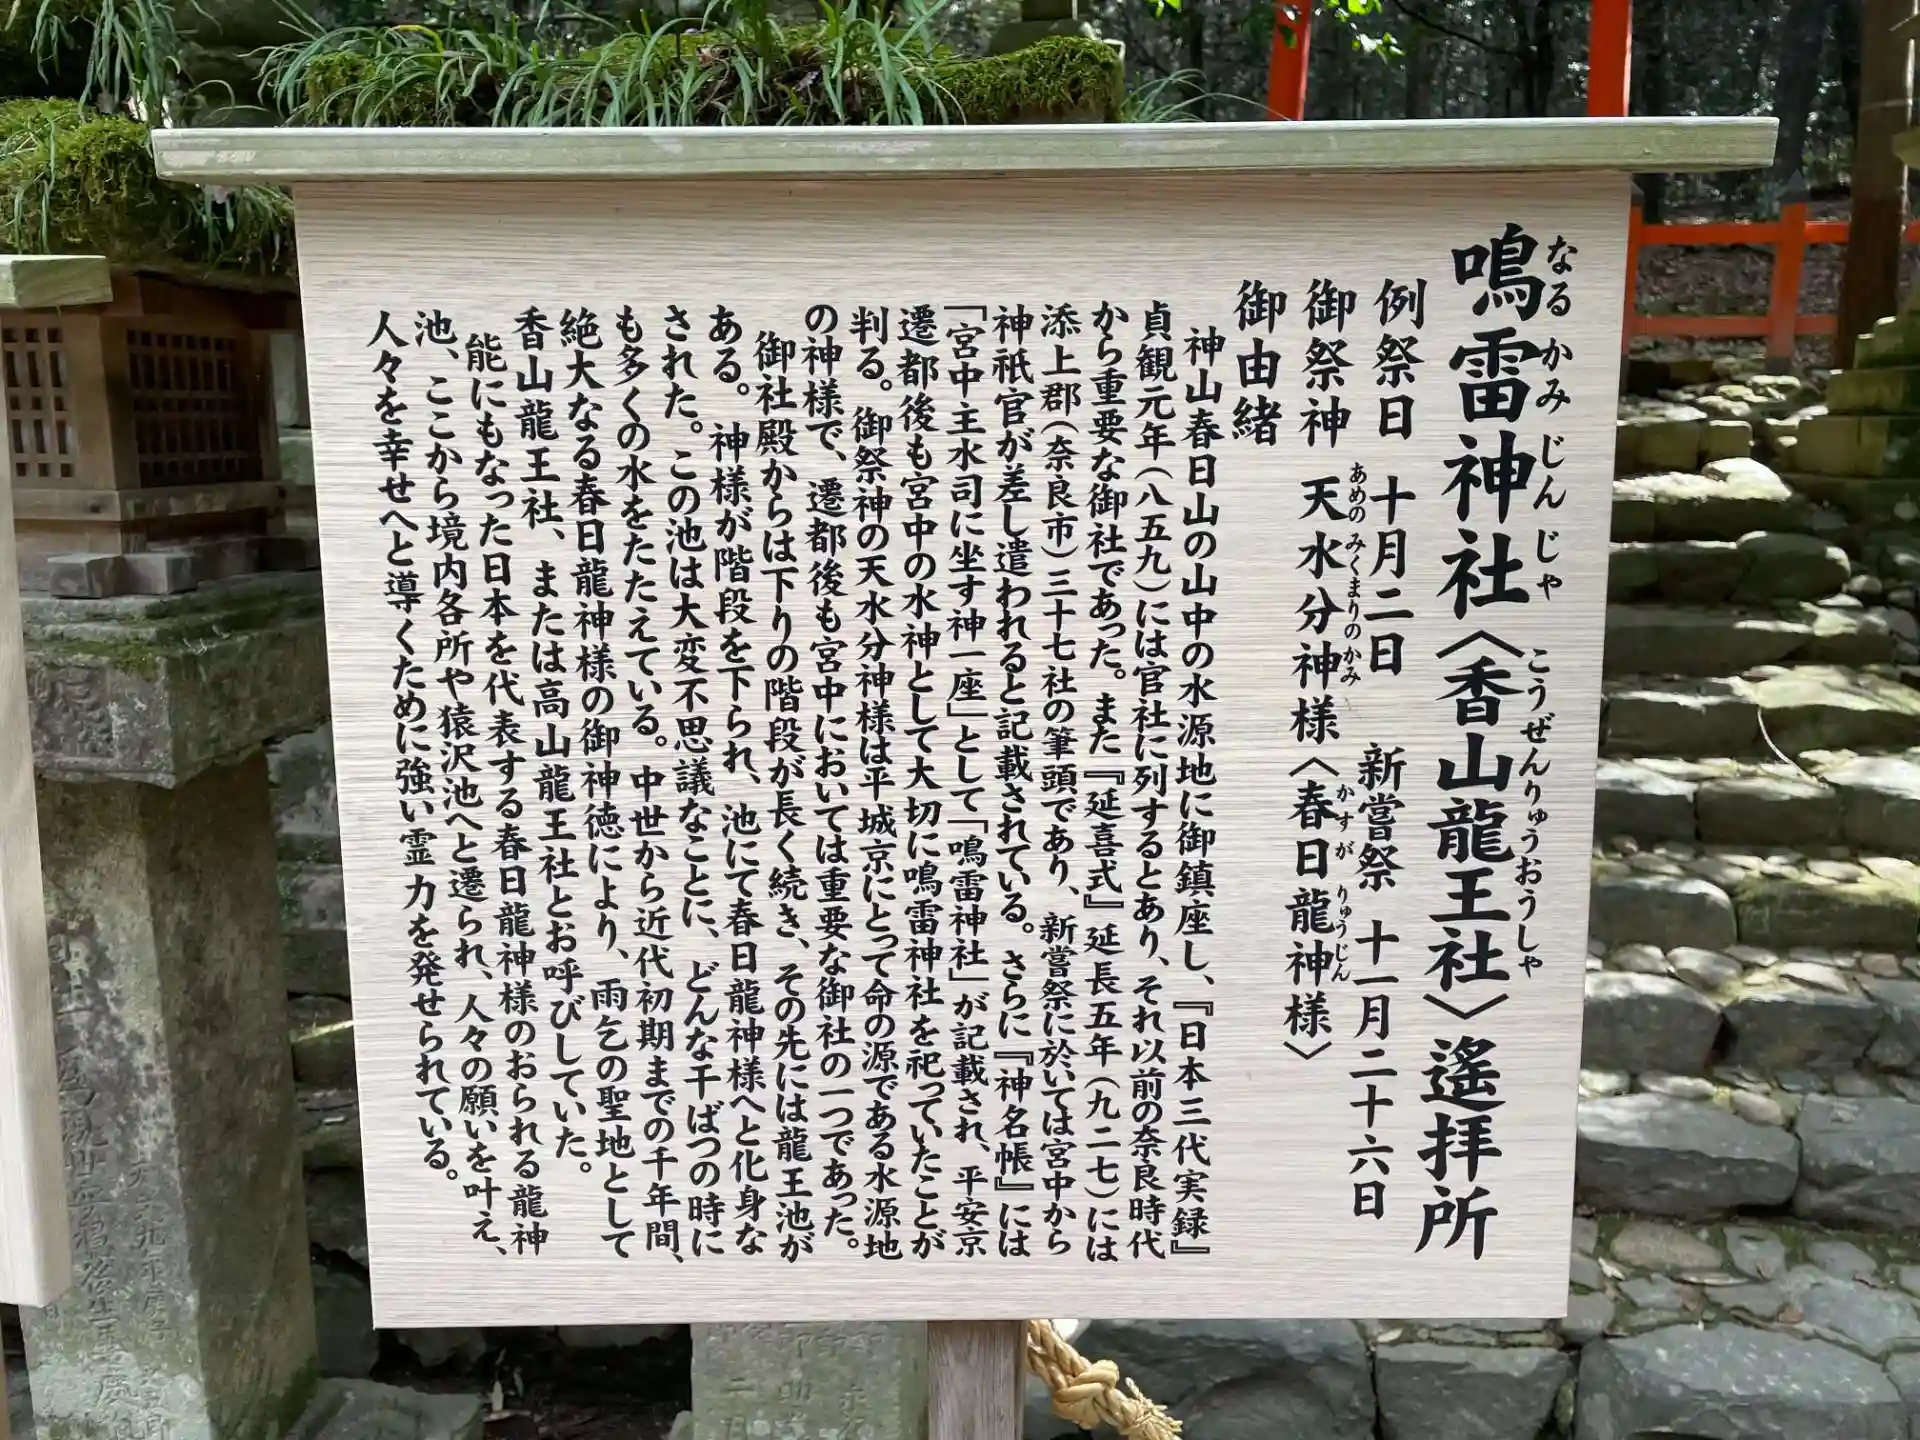 鳴雷神社〈香山龍王社〉遙拝所
なるかみじんじゃ こうぜんりゅうおうしゃ
例祭日 十月二日 新嘗祭 十一月二十六日
御祭神 天水分神様〈春日龍神様〉
あめのみくまりのかみ かすがりゅうじん
御由緒
神山春日山の山中の水源地に御鎮座し、『日本三代実録』
貞観元年（八五九）には官社に列するとあり、それ以前の奈良時代
から重要な御社であった。また『延喜式』延長五年（九二七）には
添上郡（奈良市）三十七社の筆頭であり、新嘗祭に於いては宮中から
神祇官が差し遣われると記載されている。さらに『神名帳』には
「宮中主水司に坐す神一座」として「鳴雷神社」が記載され、平安京
遷都後も宮中の水神として大切に鳴雷神社を祀っていたことが
判る。御祭神の天水分神様は平城京にとって命の源である水源地
の神様で、遷都後も宮中においては重要な御社の一つであった。
御社殿からは下りの階段が長く続き、その先には龍王池が
ある。神様が階段を下られ、池にて春日龍神様へと化身な
された。この池は大変不思議なことに、どんな干ばつの時に
も多くの水をたたえている。中世から近代初期までの千年間、
絶大なる春日龍神様の御神徳により、雨乞の聖地として
香山龍王社、または高山龍王社とお呼びしていた。
能にもなった日本を代表する春日龍神様のおられる龍神
池、ここから境内各所や猿沢池へと遷られ、人々の願いを叶え、
人々を幸せへと導くために強い霊力を発せられている。